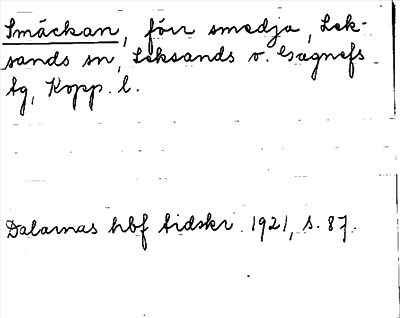 Smäckan, förr smedja, Lek-
sands sn, Leksands o. Gagnefs
tg, Kopp. l.
Dalarnas hbf tidskr. 1921, s. 87.